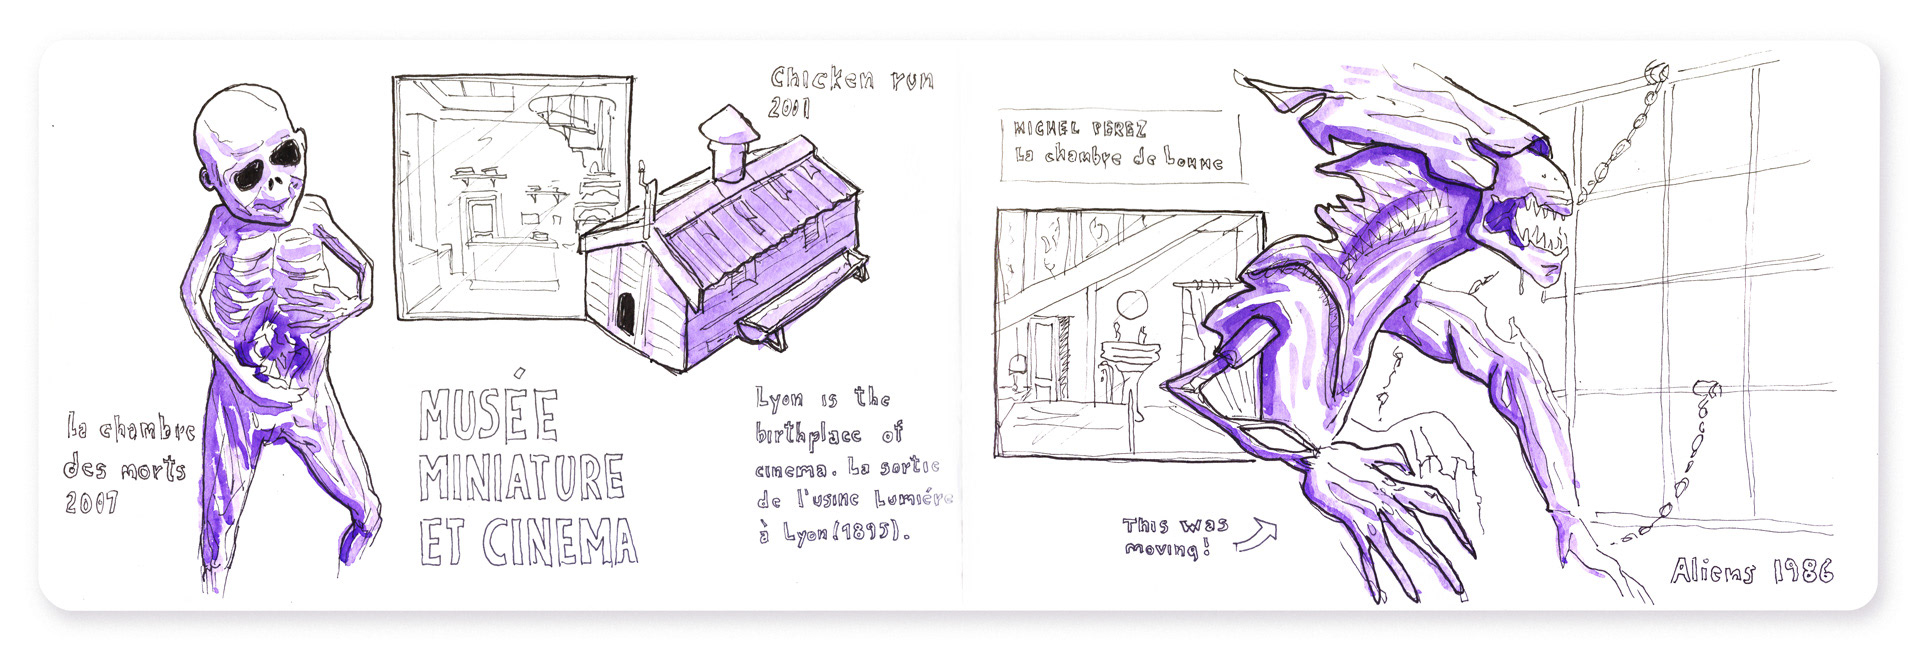 La chambre
des morts
2007
MUSÉE
MINIATURE
ET CINEMA
Chicken run
2001
Lyon is the
birthplace of
cinema. La sortie
de l'usine Lumiére
à Lyon (1895).
MICHEL PEREZ
La chambre de Lonne
This was
moving!
Aliens 1986